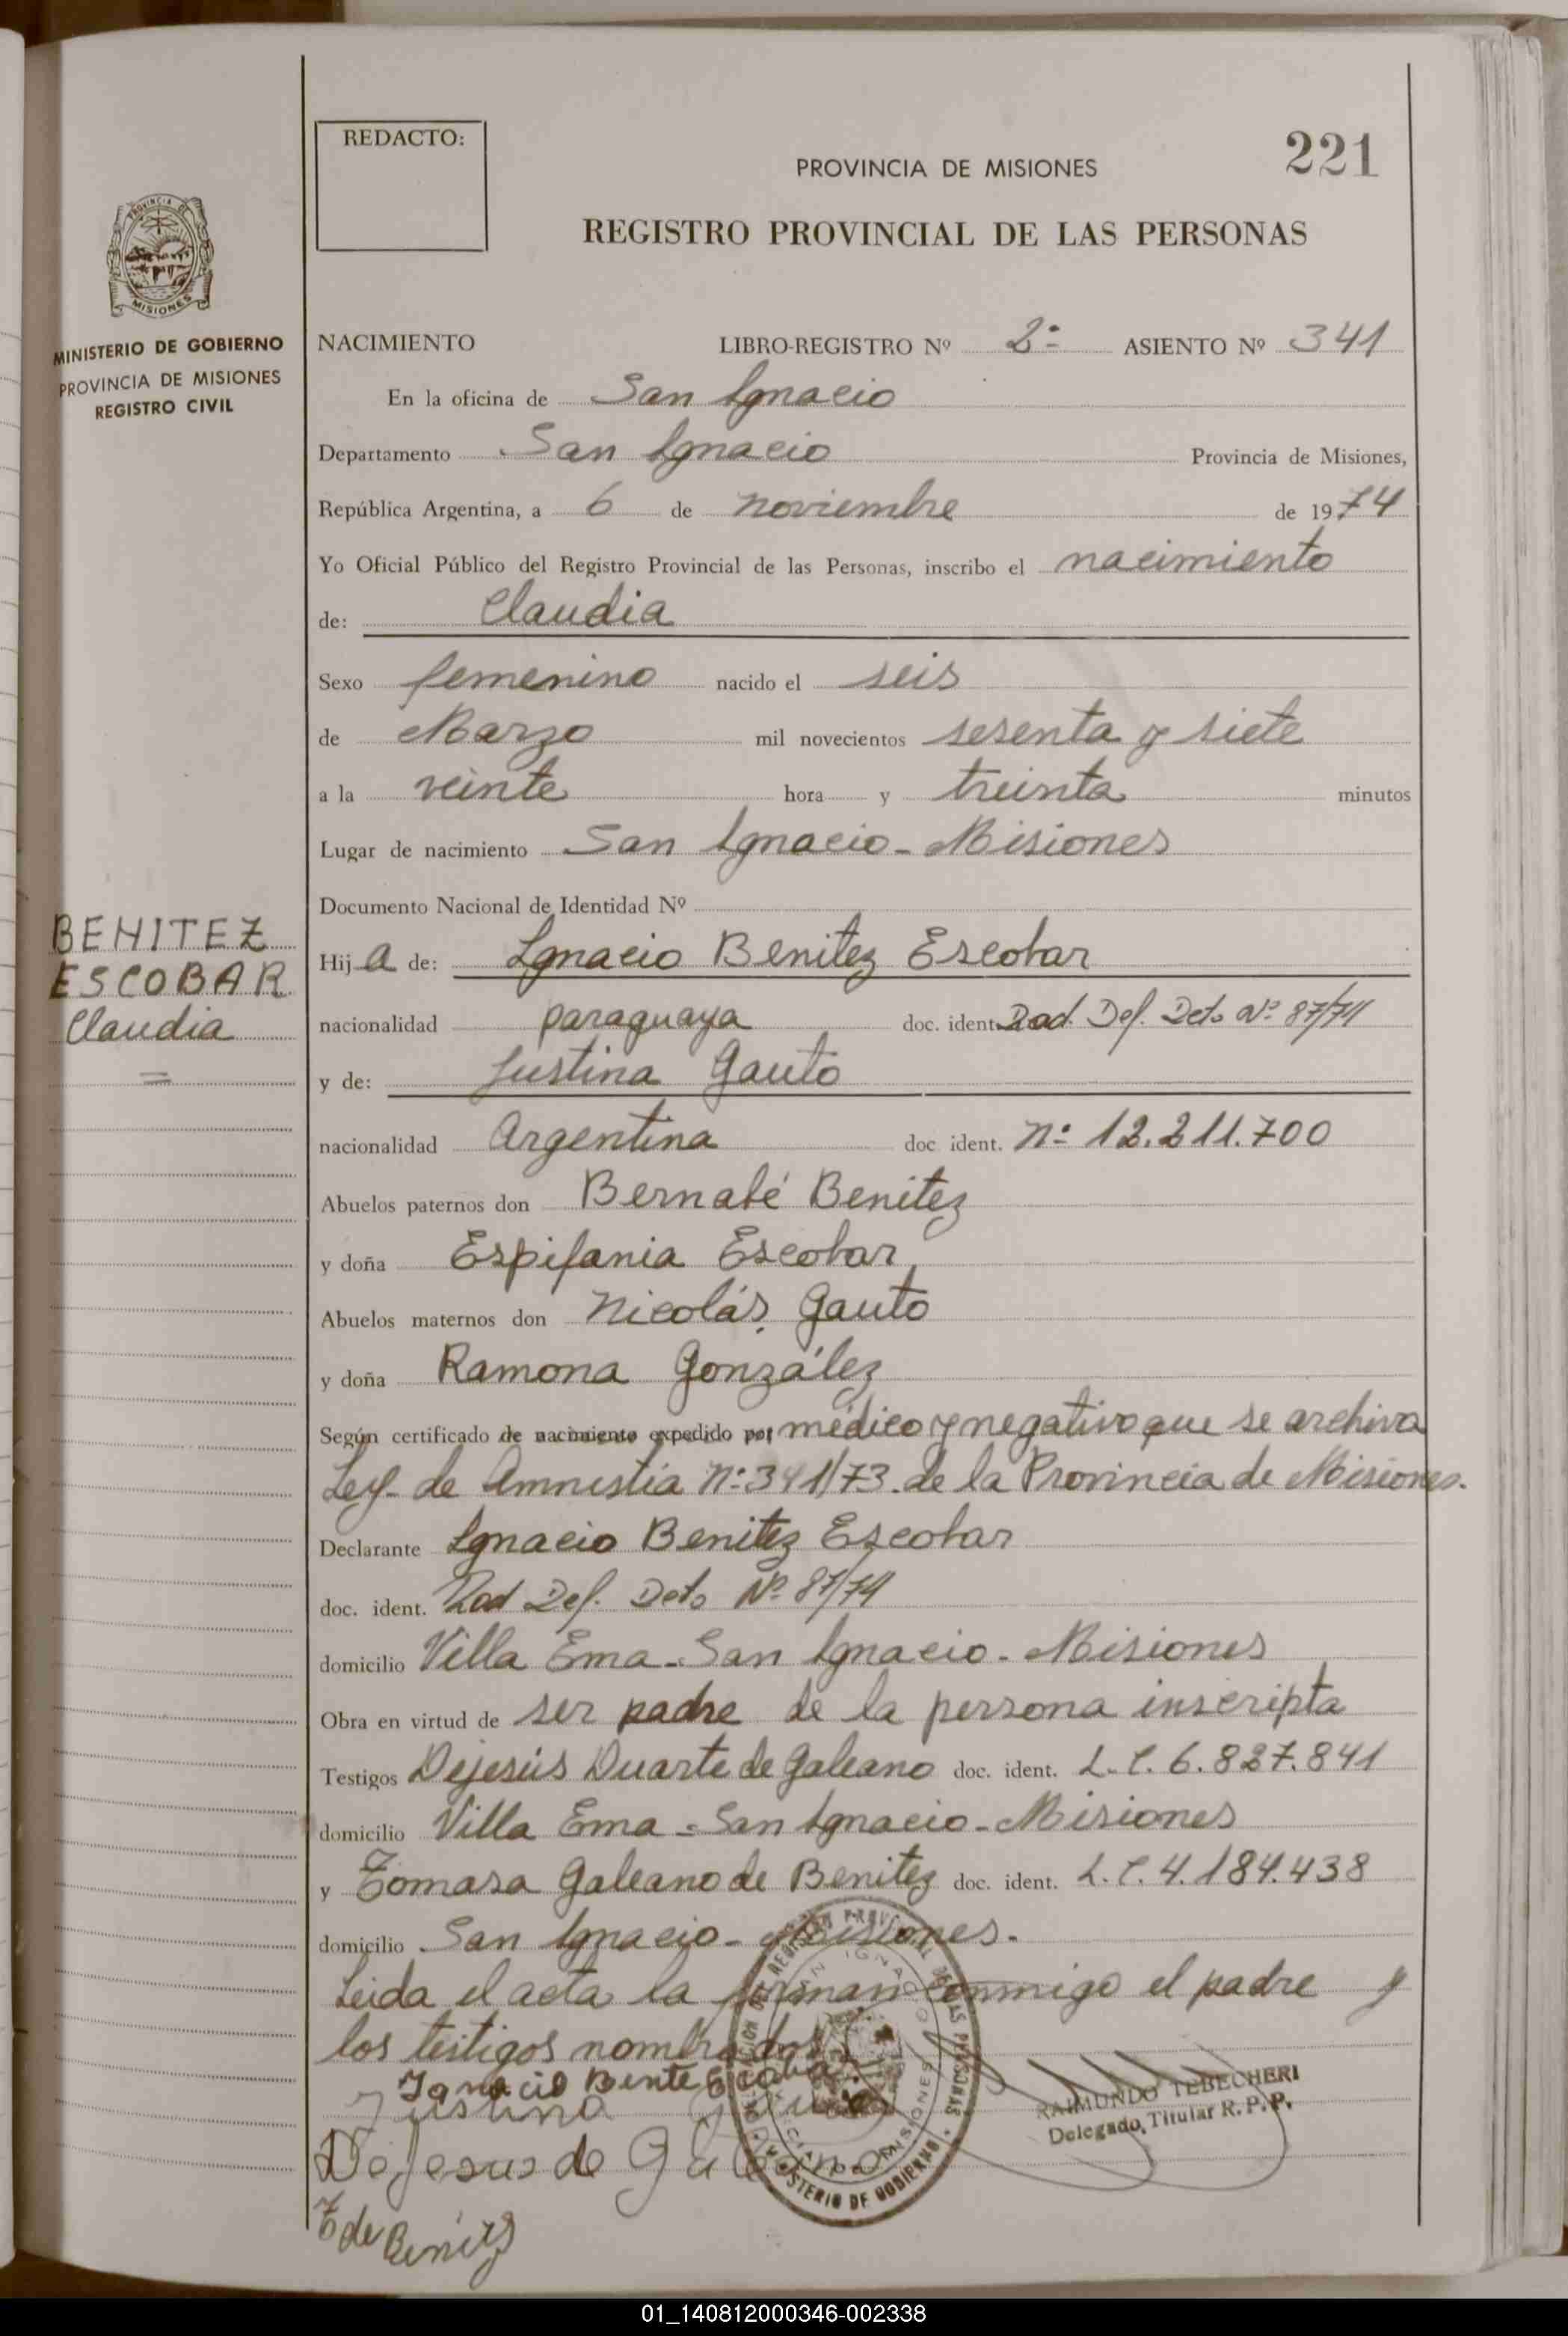 REDACTO:
221
PROVINCIA DE MISIONES
REGISTRO PROVINCIAL DE LAS PERSONAS
PROVINCIA DE
MISIONES
MINISTERIO DE GOBIERNO
PROVINCIA DE MISIONES
REGISTRO CIVIL
NACIMIENTO LIBRO-REGISTRO Nº 2º ASIENTO Nº 341
En la oficina de San Ignacio
Departamento San Ignacio Provincia de Misiones,
República Argentina, a 6 de noviembre de 1974
Yo Oficial Público del Registro Provincial de las Personas, inscribo el nacimiento
de: Claudia
Sexo femenino nacido el seis
de Marzo mil novecientos sesenta y siete
a la veinte hora y treinta minutos
Lugar de nacimiento San Ignacio - Misiones
Documento Nacional de Identidad Nº
BENITEZ
ESCOBAR
Claudia
Hija de: Ignacio Benitez Escobar
nacionalidad paraguaya doc. ident. Rad. Def. Dcto Nº 87/74
y de: Justina Gauto
nacionalidad Argentina doc. ident. Nº 12.211.700
Abuelos paternos don Bernabé Benitez
y doña Espifania Escobar
Abuelos maternos don Nicolás Gauto
y doña Ramona González
Según certificado de nacimiento expedido por médico y negativo que se archiva
Ley de Amnistia Nº 341/73 de la Provincia de Misiones.
Declarante Ignacio Benitez Escobar
doc. ident. Rad Def. Dcto Nº 87/74
domicilio Villa Ema - San Ignacio - Misiones
Obra en virtud de ser padre de la persona inscripta
Testigos Dejesús Duarte de Galeano doc. ident. L.C. 6.827.841
domicilio Villa Ema - San Ignacio - Misiones
y Tomasa Galeano de Benitez doc. ident. L.C. 4.184.438
domicilio San Ignacio - Misiones.
Leida el acta la firman conmigo el padre y
los testigos nombrados
Ignacio Benite Escobar
Justina Gauto
RAIMUNDO TEBECHERI
Delegado Titular R.P.P.
Dejesus de Galeano
MINISTERIO DE GOBIERNO
T de Benitz
01_140812000346-002338